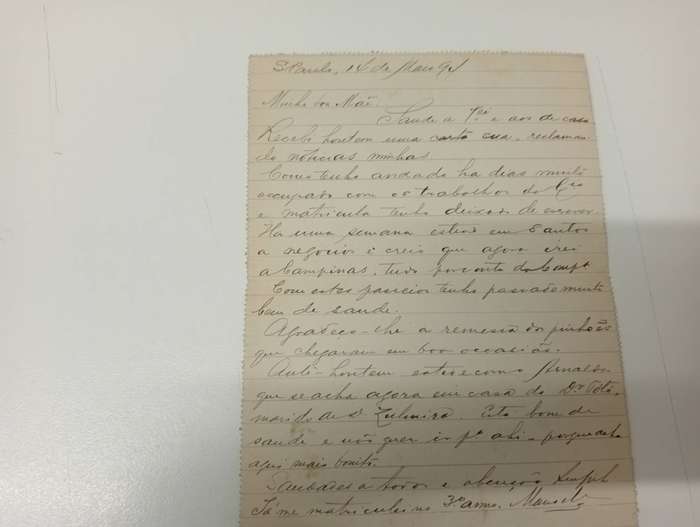 S. Paulo, 14 de Março 91
Minha boa Mãe
Saude a Vcê e aos de casa
Recebi hontem uma carta sua, reclaman-
do noticias minhas.
Como tenho andado ha dias muito
occupado com os trabalhos da
e matricula tenho deixado de escrever.
Ha uma semana estive em Santos
a negocios e creio que agora irei
a Campinas, tudo por conta da Compa
Com estes passeios tenho passado muito
bem de saude.
Agradeço-lhe a remessa dos pinhões
que chegaram em boa occasião.
Anti-hontem estive com o Arnaldo
que se acha agora em casa do Dr.
marido da Sa Zulmira. Está bom de
saude e não quer ir pa ahi - porque acha
aqui mais bonito.
Saudades a todos e abençoe
Já me matriculei no 3.o anno.